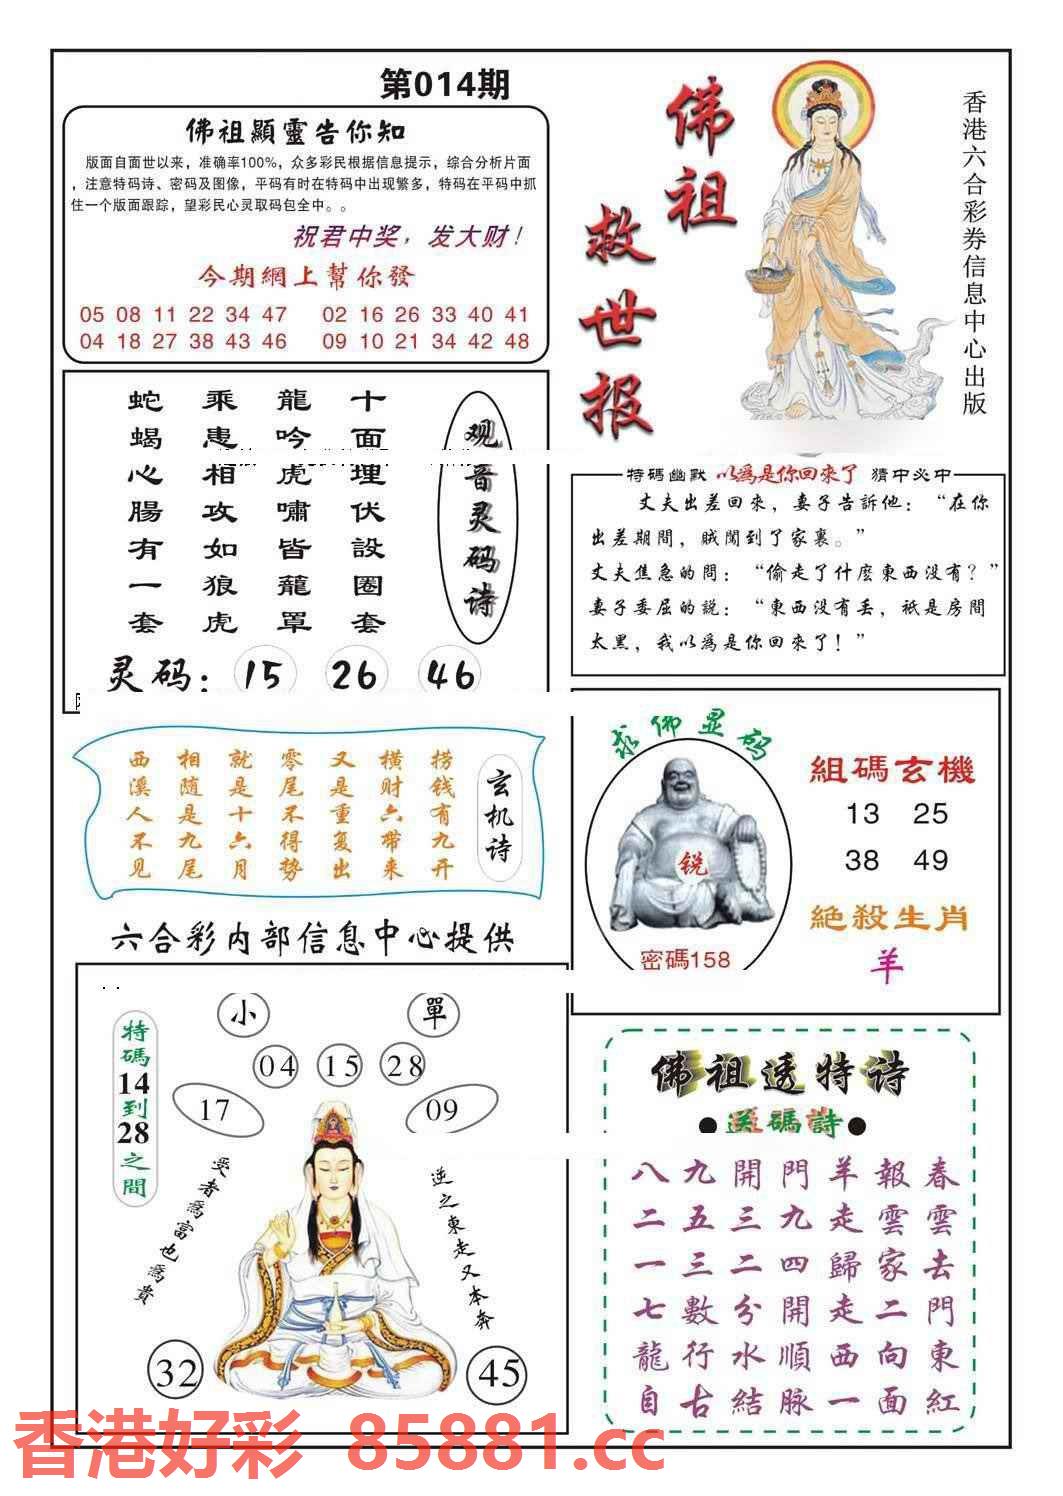 第014期
佛祖顯靈告你知
版面自面世以来，准确率100%，众多彩民根据信息提示，综合分析片面
，注意特码诗、密码及图像，平码有时在特码中出现繁多，特码在平码中抓
住一个版面跟踪，望彩民心灵取码包全中。。
祝君中奖，发大财！
今期網上幫你發
05 08 11 22 34 47 02 16 26 33 40 41
04 18 27 38 43 46 09 10 21 34 42 48
佛祖
救世报
香港六合彩券信息中心出版
观音灵码诗
十面埋伏設圈套
龍吟虎嘯皆籠罩
乘患相攻如狼虎
蛇蝎心腸有一套
灵码：15 26 46
特碼幽默 以為是你回來了 猜中必中
丈夫出差回來，妻子告訴他：“在你
出差期間，賊闖到了家裏。”
丈夫焦急的問：“偷走了什麽東西没有？”
妻子委屈的説：“東西没有丢，衹是房間
太黑，我以為是你回來了！”
玄机诗
捞钱有九开
横财六帶来
又是重复出
零尾不得势
就是十六月
相随是九尾
西溪人不见
求佛显码
锐
密碼158
組碼玄機
13 25
38 49
絶殺生肖
羊
六合彩内部信息中心提供
特碼14到28之間
小 單
04 15 28
17 09
受者為富也為貴
逆之東走又本奔
32 45
佛祖透特诗
●送碼詩●
八九開門羊報春
二五三九走雲雲
一三二四歸家去
七數分開走二門
龍行水順西向東
自古結脉一面紅
香港好彩 85881.cc